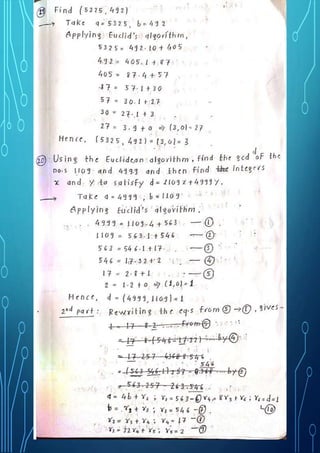 ⑲ Find (5325, 492)
→ Take a= 5325, b= 492
Applying Euclid's algorithm,
5325 = 492.10 + 405
492 = 405.1 + 87
405 = 87.4 + 57
87 = 57.1 + 30
57 = 30.1 + 27
30 = 27.1 + 3
27 = 3.9 + 0 ⇒ (3,0)=
Hence, (5325, 492) = (3,0) = 3
⑳ Using the Euclidean algorithm, find the gcd d of the
no.s 1109 and 4999 and then find the Integers
x and y to satisfy d= 1109x + 4999y.
→ Take a= 4999, b= 1109
Applying Euclid's algorithm,
4999 = 1109.4 + 563 — ①
1109 = 563.1 + 546 — ②
563 = 546.1 + 17 — ③
546 = 17.32 + 2 — ④
17 = 2.8 + 1 — ⑤
2 = 1.2 + 0 ⇒ (1,0)=1
Hence, d = (4999, 1109) = 1
2nd part: Rewriting the eq.s from ⑤ → ①, gives-
1 = 17 - 8.2 ... from ⑤
= 17 - 8(546 - 17.32) ... by ④
= 17.257 - 8.546
= (563 - 546.1)257 - 8.546 ... by ③
= 563.257 - 265.546
a = 4b + r₂ ; r₂ = 563 - ⑥